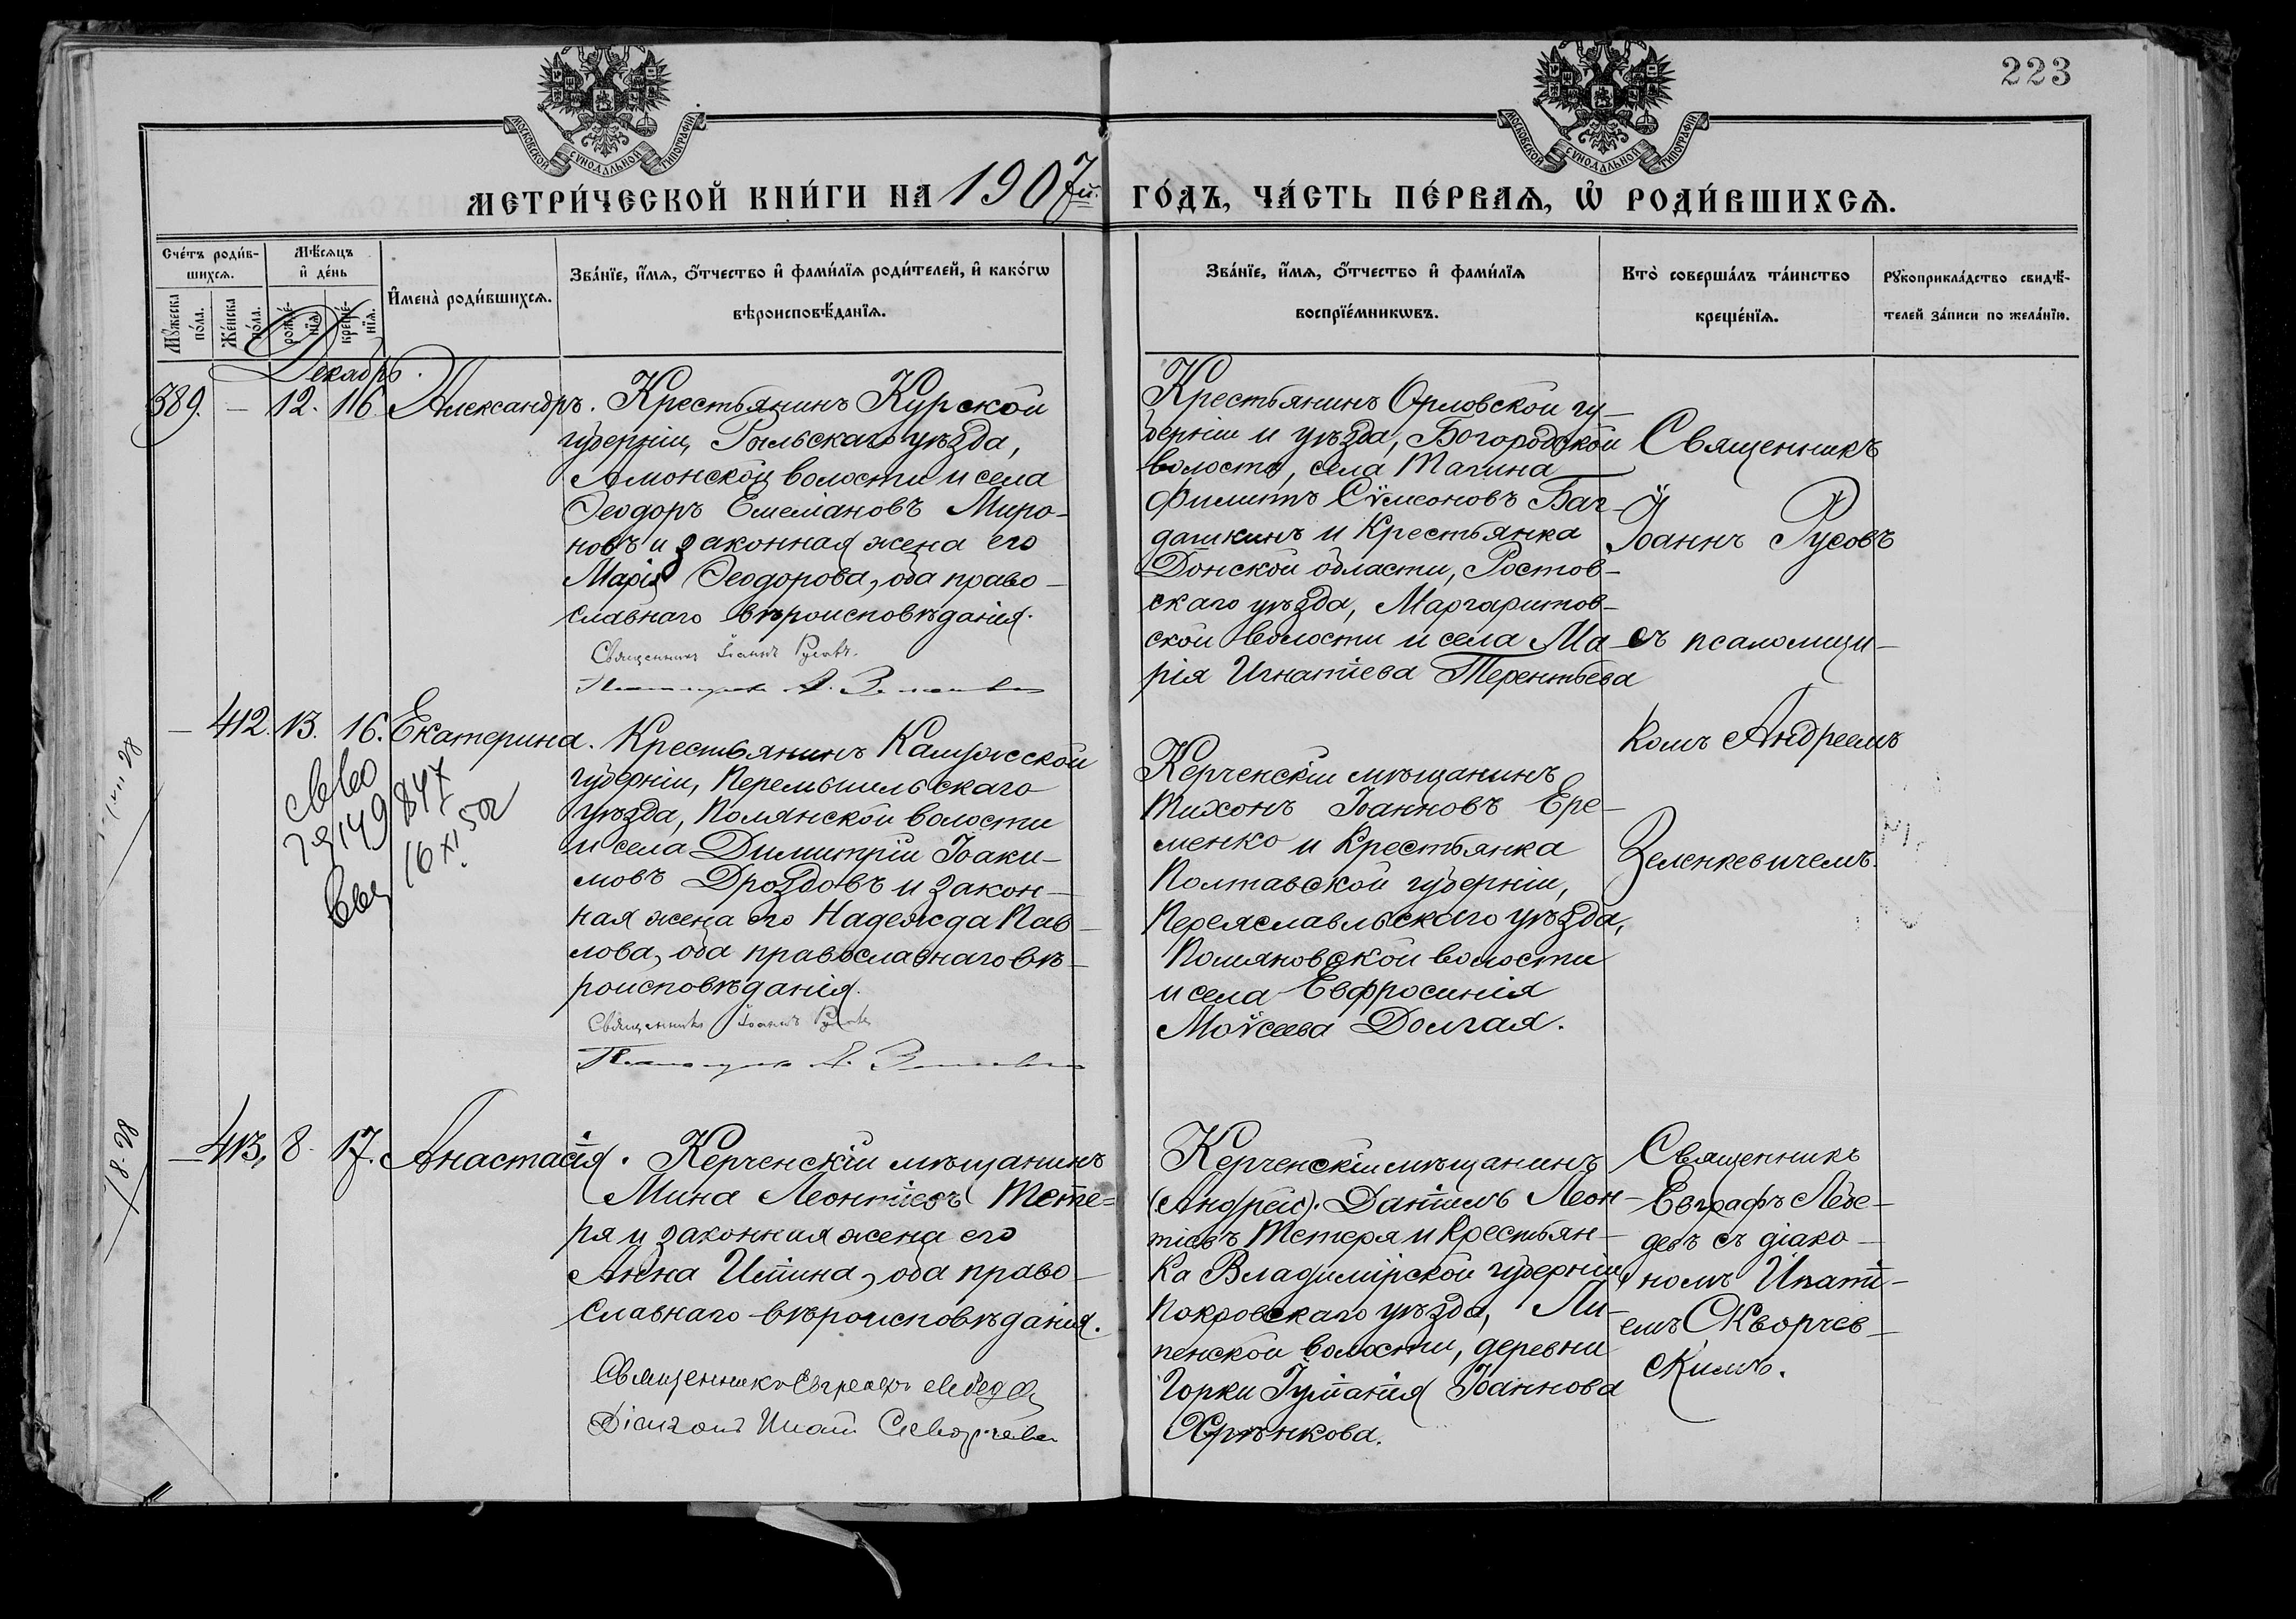 223
МОСКОВСКОЙ СУНОДАЛЬНОЙ ТИПОГРАФІИ
МОСКОВСКОЙ СУНОДАЛЬНОЙ ТИПОГРАФІИ
МЕТРИ́ЧЕСКОЙ КНИ́ГИ НА 1907й. ГО́ДЪ, ЧА́СТЬ ПЕ́РВАѦ, Ѡ҆ РОДИ́ВШИХСѦ.
Сче́тъ роди́в-
шихсѧ.
Мꙋ́жеска по́ла.
Же́нска по́ла.
Мѣ́сѧцъ
и҆ де́нь
рожде́-нїѧ.
креще́-нїѧ.
И҆мена̀ роди́вшихсѧ.
Зва́нїе, и҆́мѧ, ѻ҆́тчество и҆ фами́лїѧ роди́телей, и҆ како́гѡ
вѣроисповѣ́данїѧ.
Зва́нїе, и҆́мѧ, ѻ҆́тчество и҆ фами́лїѧ
воспрїе́мникѡвъ.
Кто̀ соверша́лъ та́инство
креще́нїѧ.
Рꙋкоприкла́дство свидѣ́-
телей за́писи по жела́нїю.
Декабрь.
389. — 12. 16 Александръ.
Крестьянинъ Курской
губерніи, Рыльскаго уѣзда,
Амонской волости и села
Ѳеодоръ Емеліановъ Миро-
новъ и законная жена его
Марія Ѳеодорова, оба право-
славнаго вѣроисповѣданія.
Священникъ Іоаннъ Русовъ.
Крестьянинъ Орловской гу-
берніи и уѣзда, Богородской
волости, села Тагина
Филиппъ Сѵмеоновъ Баг-
дашкинъ и Крестьянка
Донской области, Ростов-
скаго уѣзда, Маргаритов-
ской волости и села Ма-
рія Игнатіева Терентьева
Священникъ
Іоаннъ Русовъ
съ псаломщи-
комъ Андреемъ
Зеленкевичемъ.
— 412. 13. 16. Екатерина.
16 XI 50г
Крестьянинъ Калужской
губерніи, Перемышльскаго
уѣзда, Полянской волости
и села Димитрій Іоаки-
мовъ Дроздовъ и закон-
ная жена его Надежда Пав-
лова, оба православнаго вѣ-
роисповѣданія.
Священникъ Іоаннъ Русовъ
Керченскій мѣщанинъ
Тихонъ Іоанновъ Ере-
менко и Крестьянка
Полтавской губерніи,
Переяславльскаго уѣзда,
Помяновской волости
и села Евфросинія
Моѵсеева Долгая.
— 413. 8. 17. Анастасія.
Керченскій мѣщанинъ
Мина Леонтіевъ Тете-
ря и законная жена его
Анна Иліина, оба право-
славнаго вѣроисповѣданія.
Священникъ Евграфъ Лебедевъ
Діаконъ Ипатій Скворчевскій
Керченскій мѣщанинъ
(Андрей). Даніилъ Леон-
тіевъ Тетеря и Крестьян-
ка Владимірской губерніи,
Покровскаго уѣзда, Ли-
пенской волости, деревни
Горки Іуліанія Іоаннова
Хрѣнкова.
Священникъ
Евграфъ Лебе-
девъ съ діако-
номъ Ипаті-
емъ Скворчев-
скимъ.